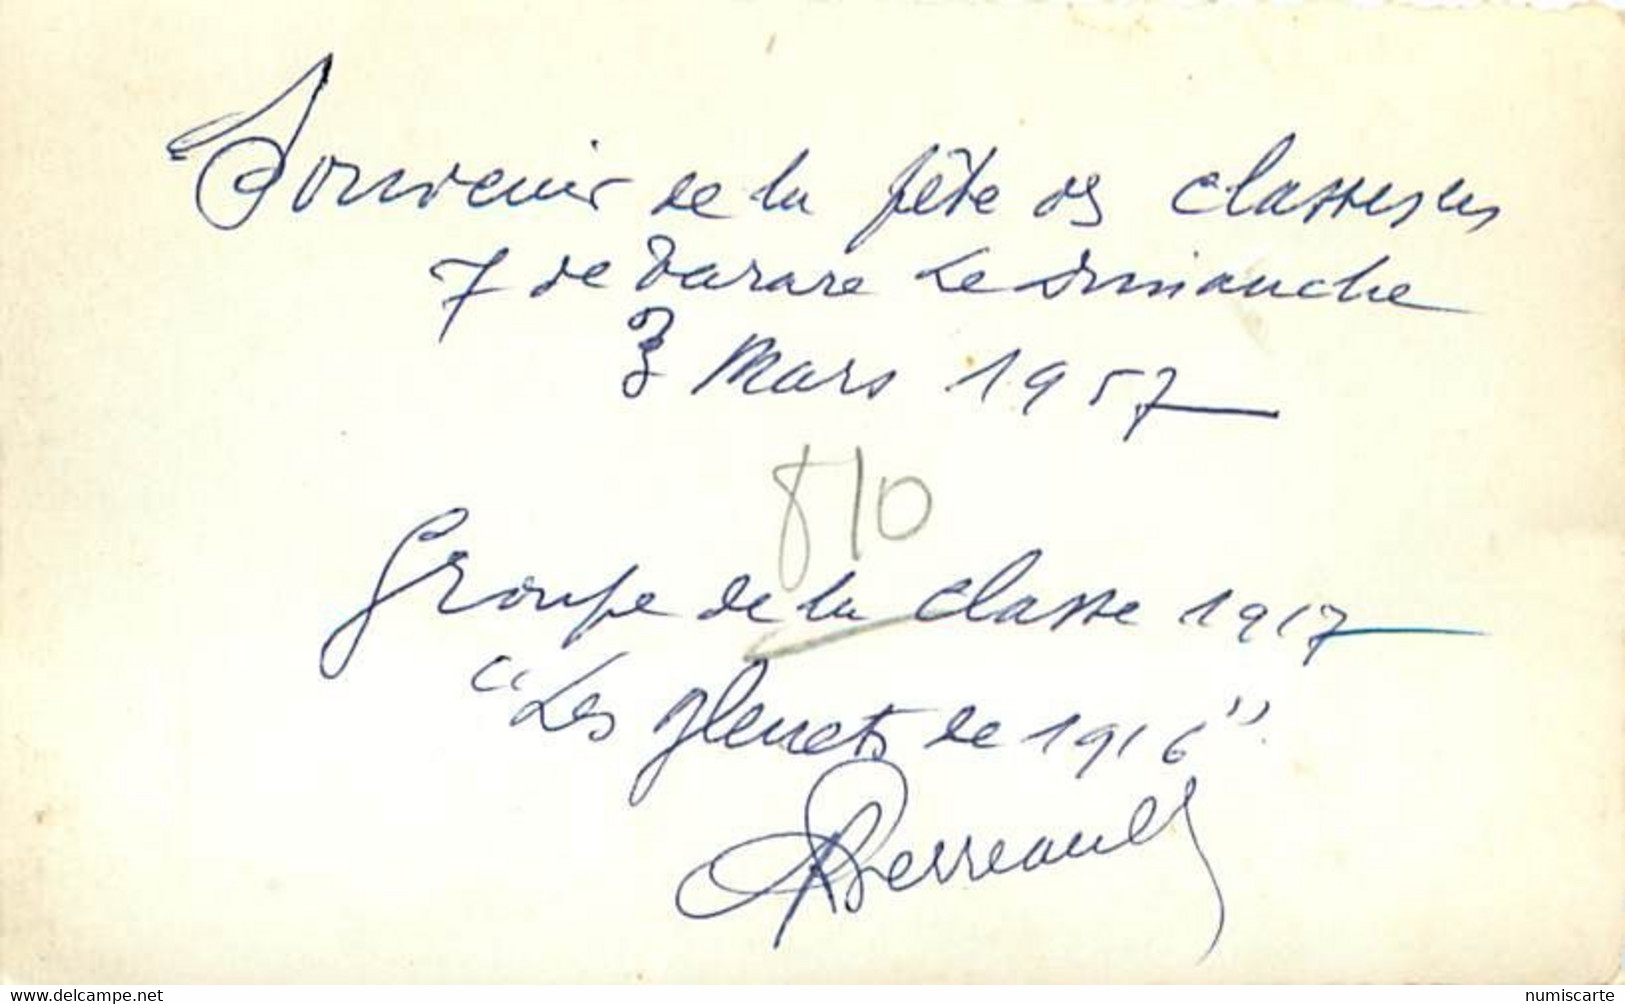 Souvenir de la fête des classes en
7 de Tarare le dimanche
3 Mars 1957
810
Groupe de la classe 1917
"Les glenets de 1916"
Perreault
www.delcampe.net
numiscarte